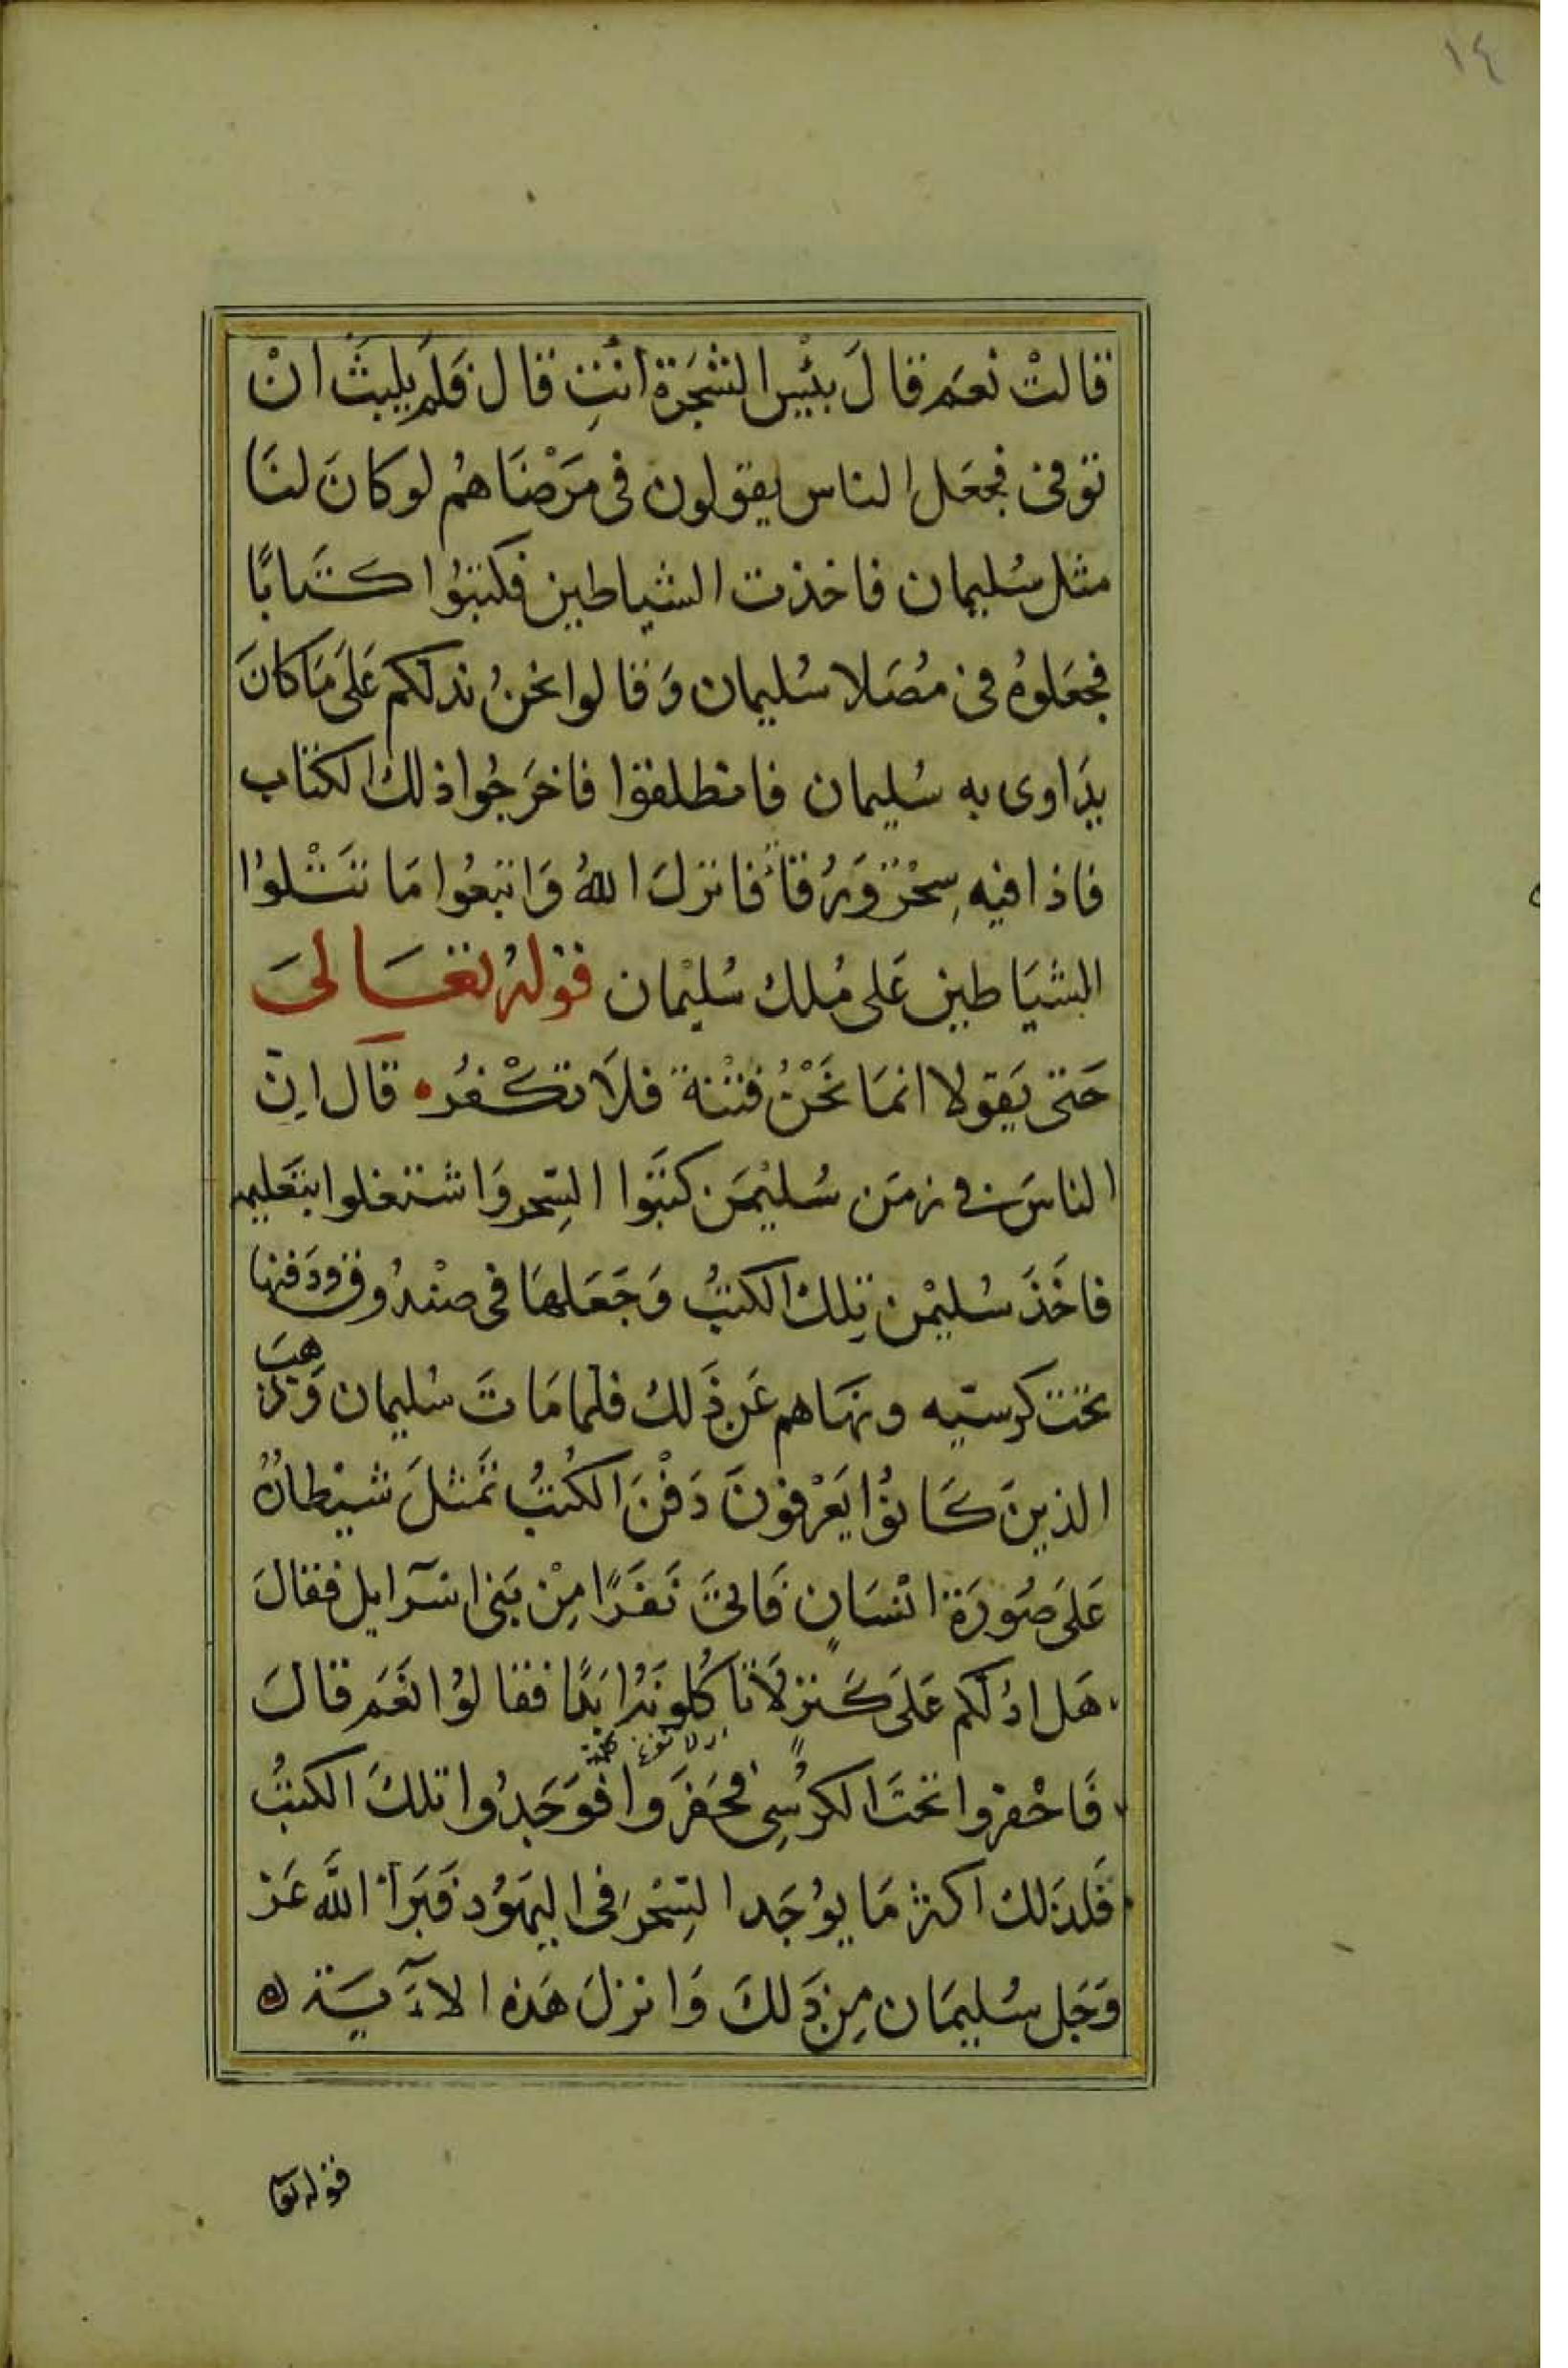 ١٤
قالتْ نعَم قالَ بئيس الشجَرة انتِ قال فلَم يلبثَ انْ
توفى فجعَل الناس يقولون فى مَرْضَاهُم لو كانَ لنَا
مثل سُليمان فاخذت الشياطين فكتبُوا كتَابًا
فجعَلوهُ فى مُصَلا سُليمان وَقالوا نحنُ ندلكم عَلَى مَا كانَ
يدَاوى به سُليمان فانطلقوا فاخرَجُوا ذلك الكتاب
فاذا فيه سِحْرٌ وَرُقًا فانزلَ اللهُ وَاتبعُوا مَا تتْلوُا
الشيَاطين عَلى مُلك سُليْمان قوْلهُ تعَالىَ
حَتى يَقولا انمَا نَحْنُ فتْنة فلَا تكْفُر ه قال انّ
الناسَ فى زمَن سُليْمَن كتبَوا السِّحر وَاشتغلوا بتعَليمه
فاخَذَ سُليمْن تِلك الكتبُ وَجَعَلهَا فى صنْدُوق ودَفنها
تحَت كرسيّه ونهَاهم عَن ذَلك فلمَا مَاتَ سُليمان وَذهبَ
الذينَ كَانوُا يَعْرفونَ دَفْنَ الكُتبُ تمَثلَ شيْطانٌ
عَلىَ صُورَة انْسَانٍ فَاتىَ نَفَرًا مِنْ بَنى اسْرآيل فقالَ
هَل ادُلّكم عَلىَ كَنزٍ لَا تاكُلونهُ ابَدًا فقالوُا نَعَم قالَ
فَاحْفروا تحَتَ الكرُسِى فحَفَروا فوَجَدُوا تلكَ الكتبُ
فَلذلك اكثر مَا يوُجَد السِّحْرَ فى اليهَوُد فَبَرأ اللَّه عَز
وَجَل سُليمَان مِن ذَلكَ وَانزلَ هَذه الاَءآيَة ه
قوله تعا